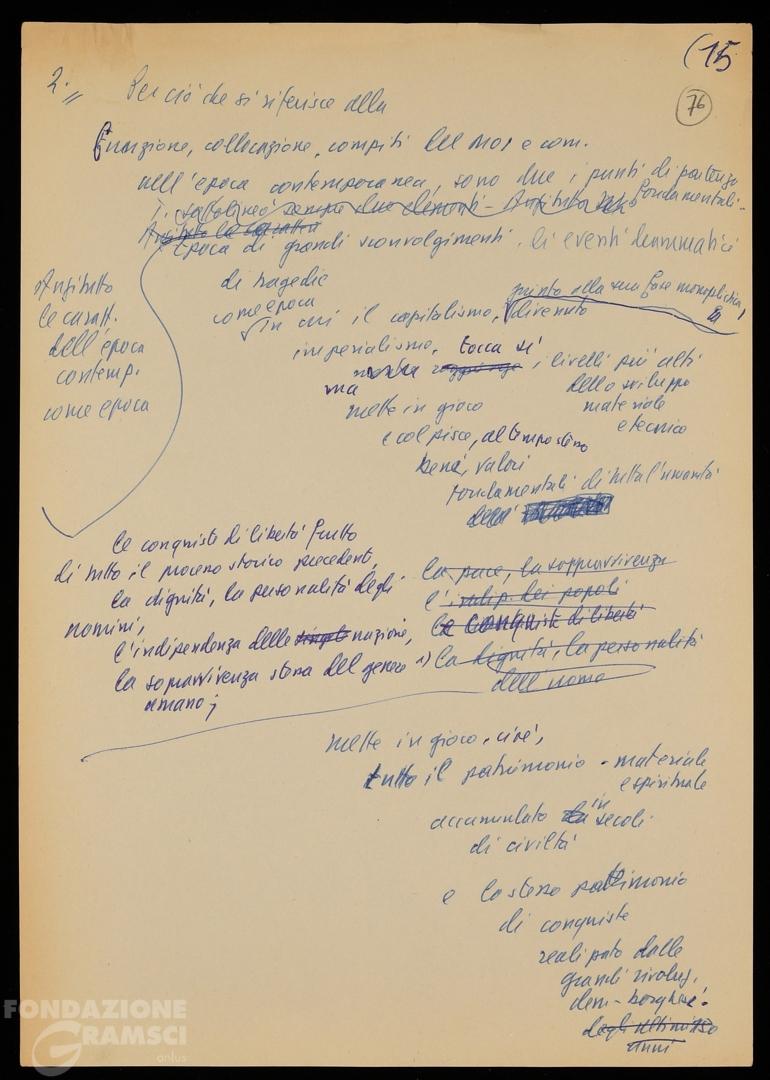 (15
76
2.
Per ciò che si riferisce alla
funzione, collocazione, compiti del mov e com.
nell'epoca contemporanea, sono due i punti di partenza
fondamentali.
sottolineo sempre due elementi - Anzitutto
Anzitutto le caratt
Epoca di grandi sconvolgimenti, di eventi drammatici
di tragedie
come epoca
Anzitutto
le caratt.
dell'epoca
contemp.
come epoca
in cui il capitalismo, divenuto
giunto alla sua fase monopolistica,
imperialismo, tocca sì i livelli più alti
dello sviluppo
materiale
e tecnico
ma
mette in gioco
e colpisce, al tempo stesso
beni, valori
fondamentali di tutta l'umanità
dell'
le conquiste di libertà frutto
di tutto il processo storico precedente,
la dignità, la personalità degli
uomini,
l'indipendenza delle singole nazione,
la sopravvivenza stessa del genere
umano;
la pace, la sopravvivenza
l'indip. dei popoli
le conquiste di libertà
la dignità, la personalità
dell'uomo
mette in gioco, cioè,
tutto il patrimonio - materiale
e spirituale
accumulato in secoli
di civiltà
e lo stesso patrimonio
di conquiste
realizzato dalle
grandi rivoluz.
dem-borghesi
degli ultimi 150
anni
FONDAZIONE
GRAMSCI
onlus